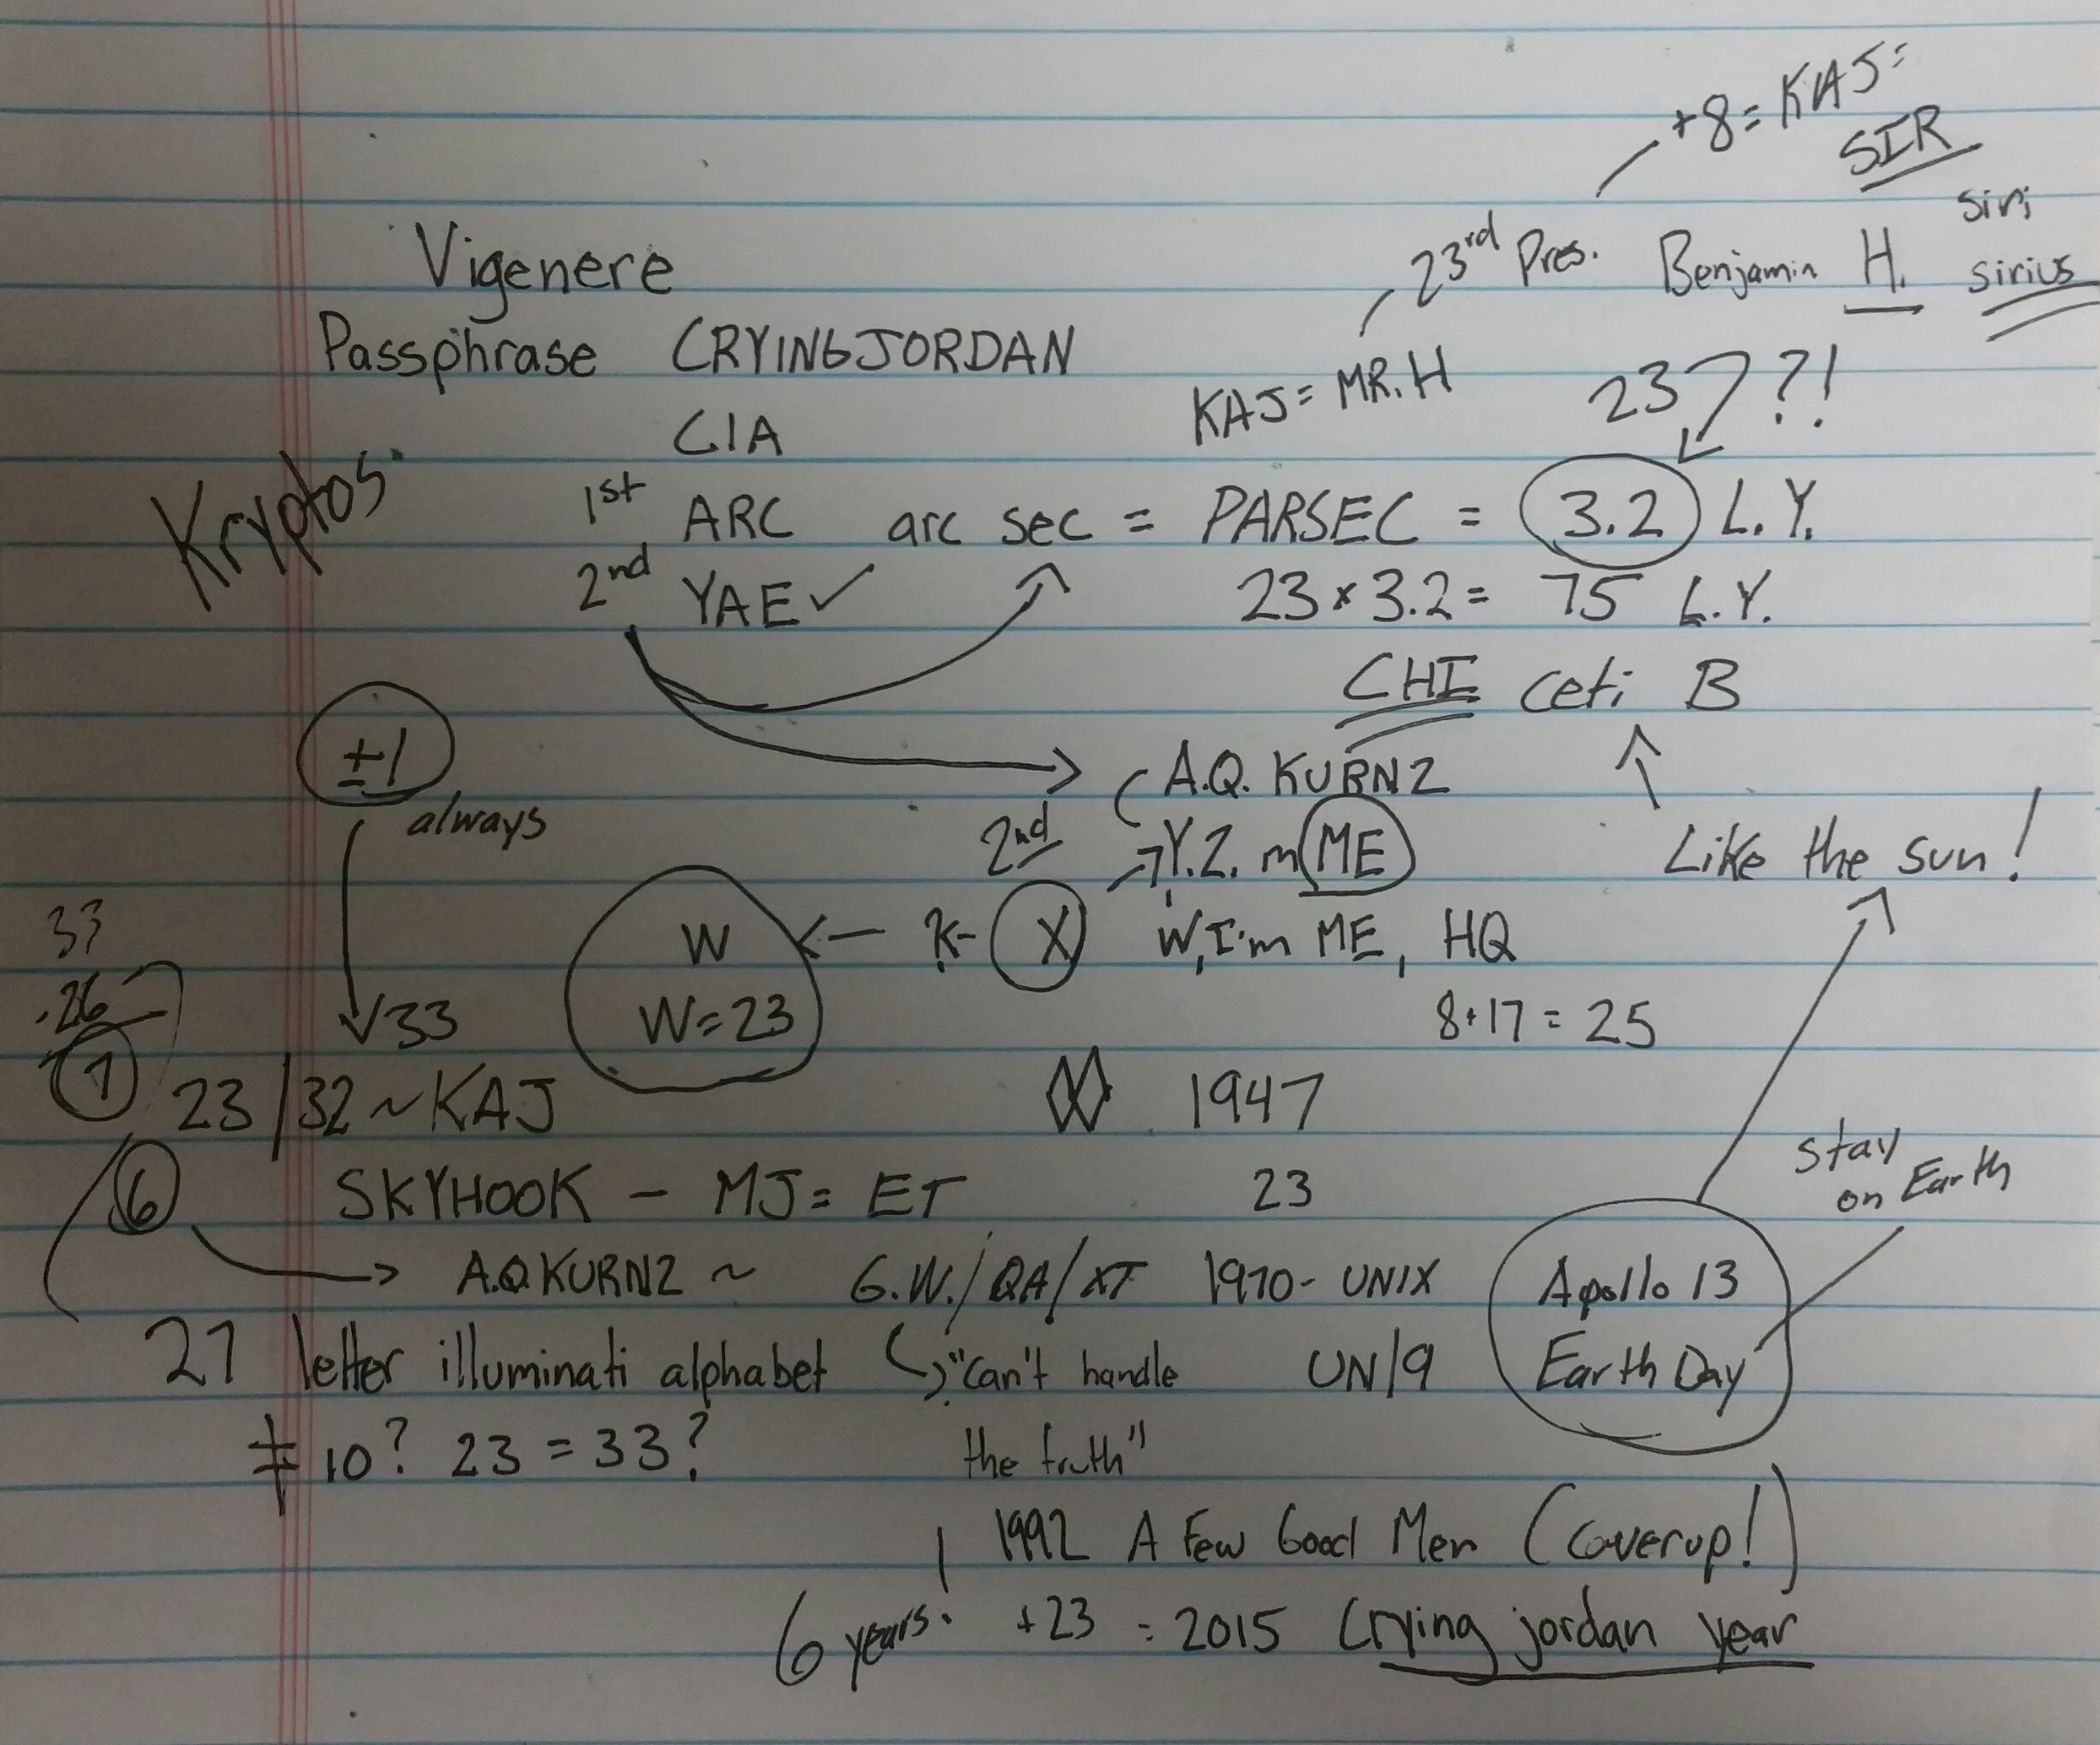 +8 = KAJ =
SIR
siri
23rd Pres. Benjamin H. sirius
Vigenere
Passphrase CRYINGJORDAN
KAJ = MR. H 23 ??!
CIA
Kryptos
1st ARC arc sec = PARSEC = 3.2 L.Y.
2nd YAE ✓ 23 x 3.2 = 75 L.Y.
CHI Ceti B
±1
always
A.Q. KURNZ
2nd Y.Z. m ME Like the sun!
W K- X W, I'm ME, HQ
W=23 8+17 = 25
33
26
7
33
23/32 ~ KAJ 1947
stay
on Earth
6 SKYHOOK - MJ = ET 23
A.Q. KURNZ ~ G.W./QA/XT 1970 - UNIX Apollo 13
27 letter illuminati alphabet "Can't handle UN/9 Earth Day
≠ 10? 23 = 33? the truth"
1992 A Few Good Men (coverup!)
6 years. +23 = 2015 Crying jordan year